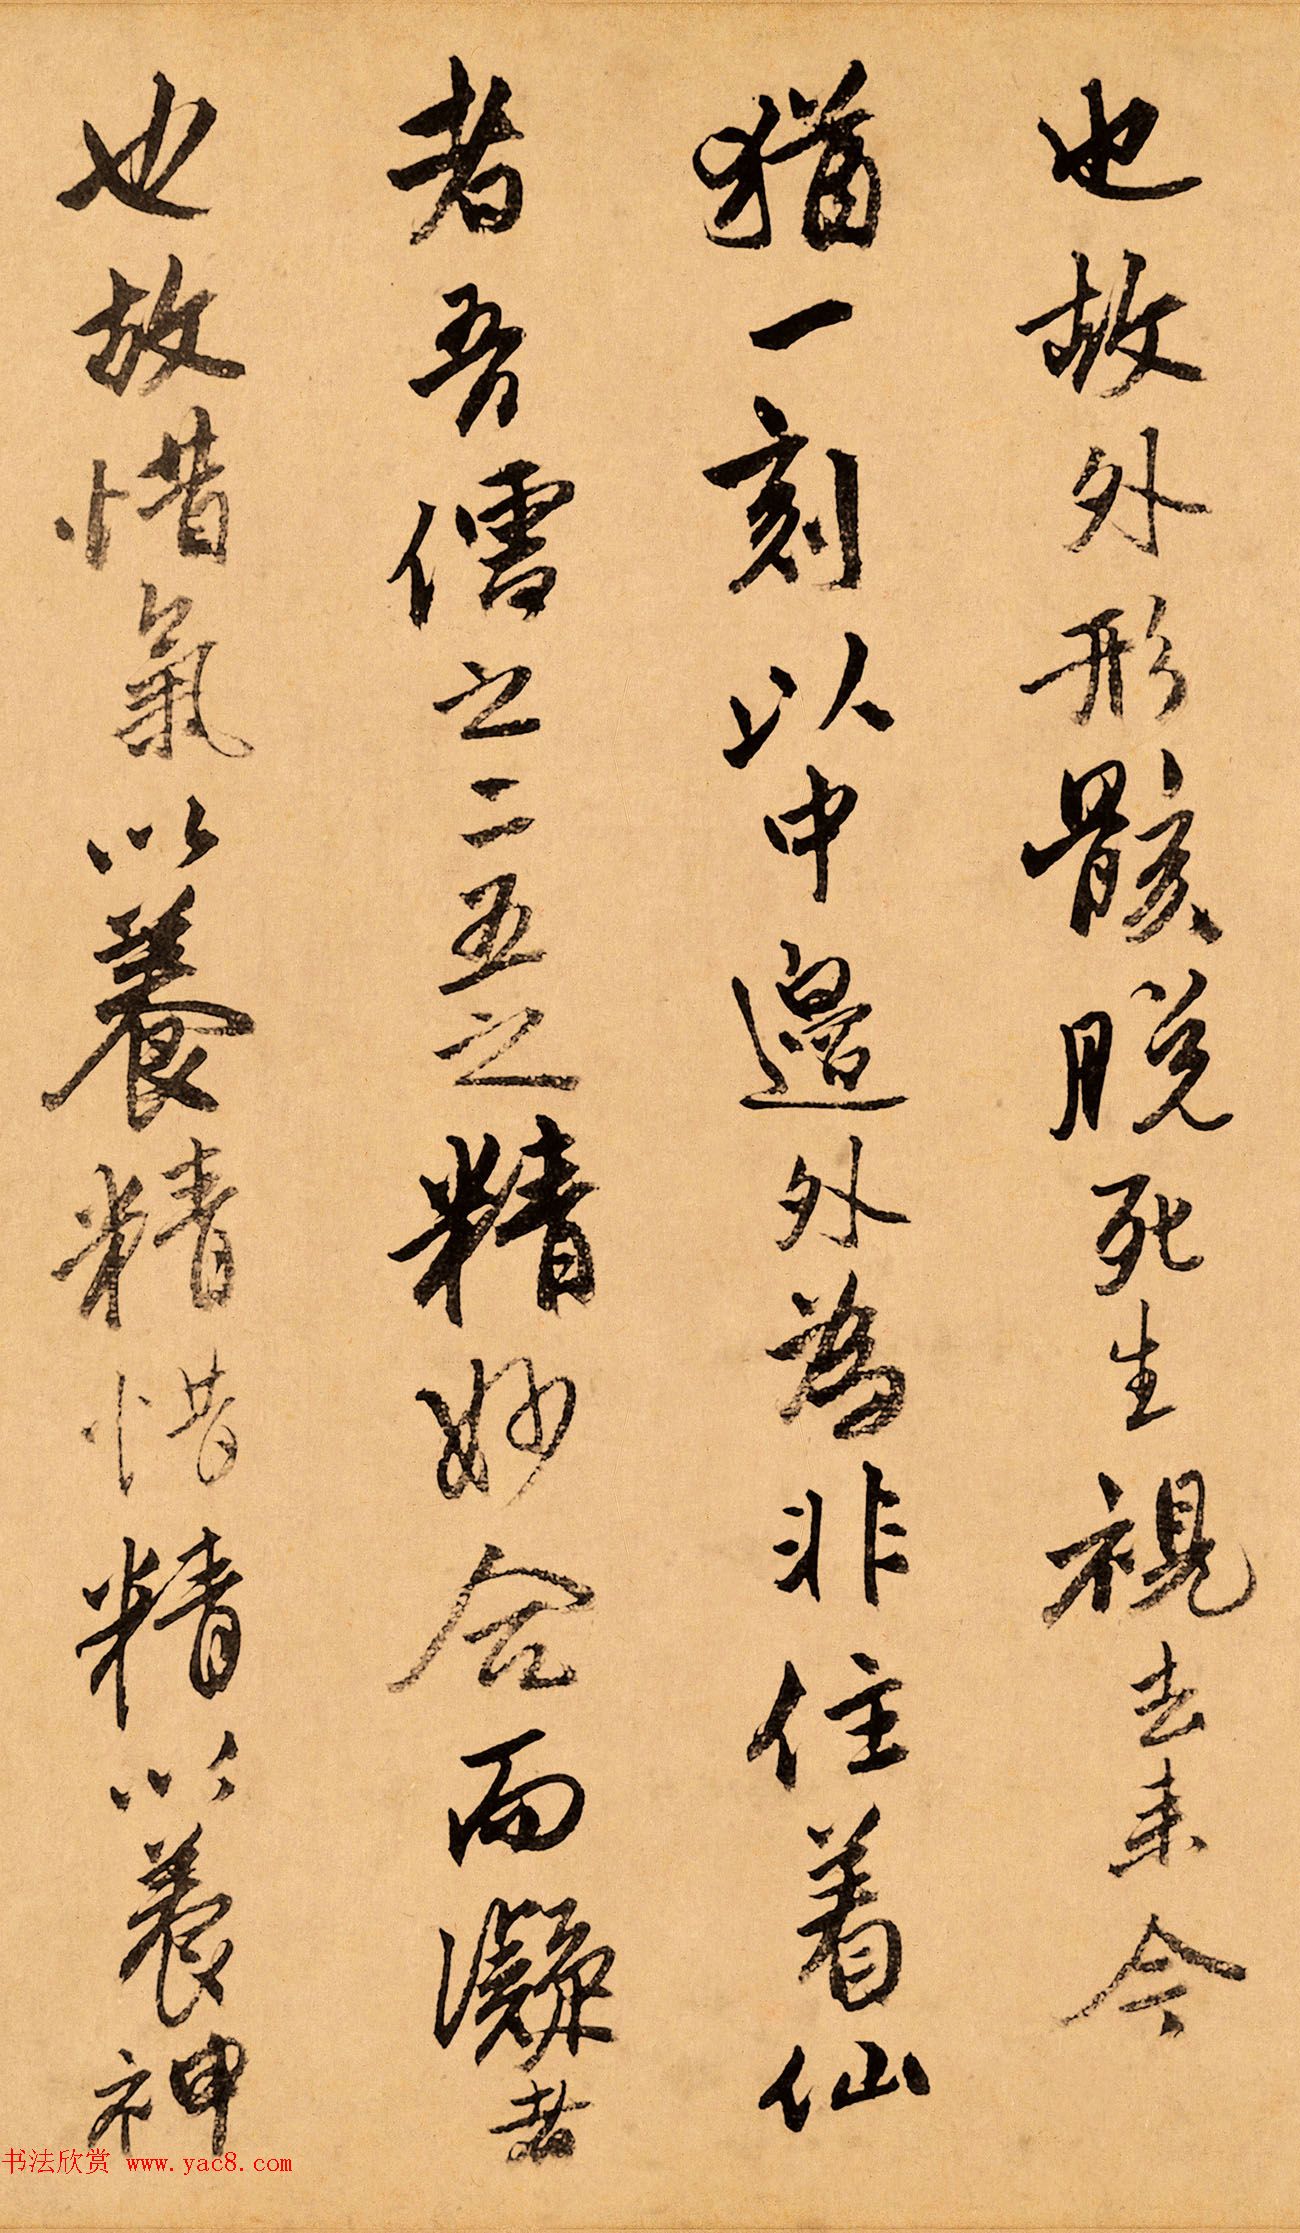 也故外形骸脱死生視去来今
猶一刻以中邉外為非住着仙
者吾儒之二五之精妙合而凝者
也故惜氣以養精惜精以養神
书法欣赏 www.yac8.com